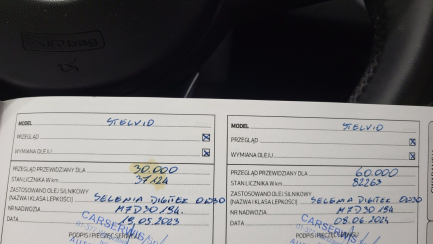 MODEL STELVIO
PRZEGLĄD
WYMIANA OLEJU
PRZEGLĄD PRZEWIDZIANY DLA 30.000
STAN LICZNIKA W km 37124
ZASTOSOWANO OLEJ SILNIKOWY
(NAZWA I KLASA LEPKOŚCI) SELENIA DIGITEK 0W30
NR NADWOZIA M7D30194.
DATA 18.05.2023
CARSERWIS
PODPIS I PIECZĘĆ SERWISU
MODEL STELVIO
PRZEGLĄD
WYMIANA OLEJU
PRZEGLĄD PRZEWIDZIANY DLA 60.000
STAN LICZNIKA W km 82263
ZASTOSOWANO OLEJ SILNIKOWY
(NAZWA I KLASA LEPKOŚCI) SELENIA DIGITEK 0W30
NR NADWOZIA M7D30194.
DATA 08.06.2024
CARSERWIS
PODPIS I PIECZĘĆ